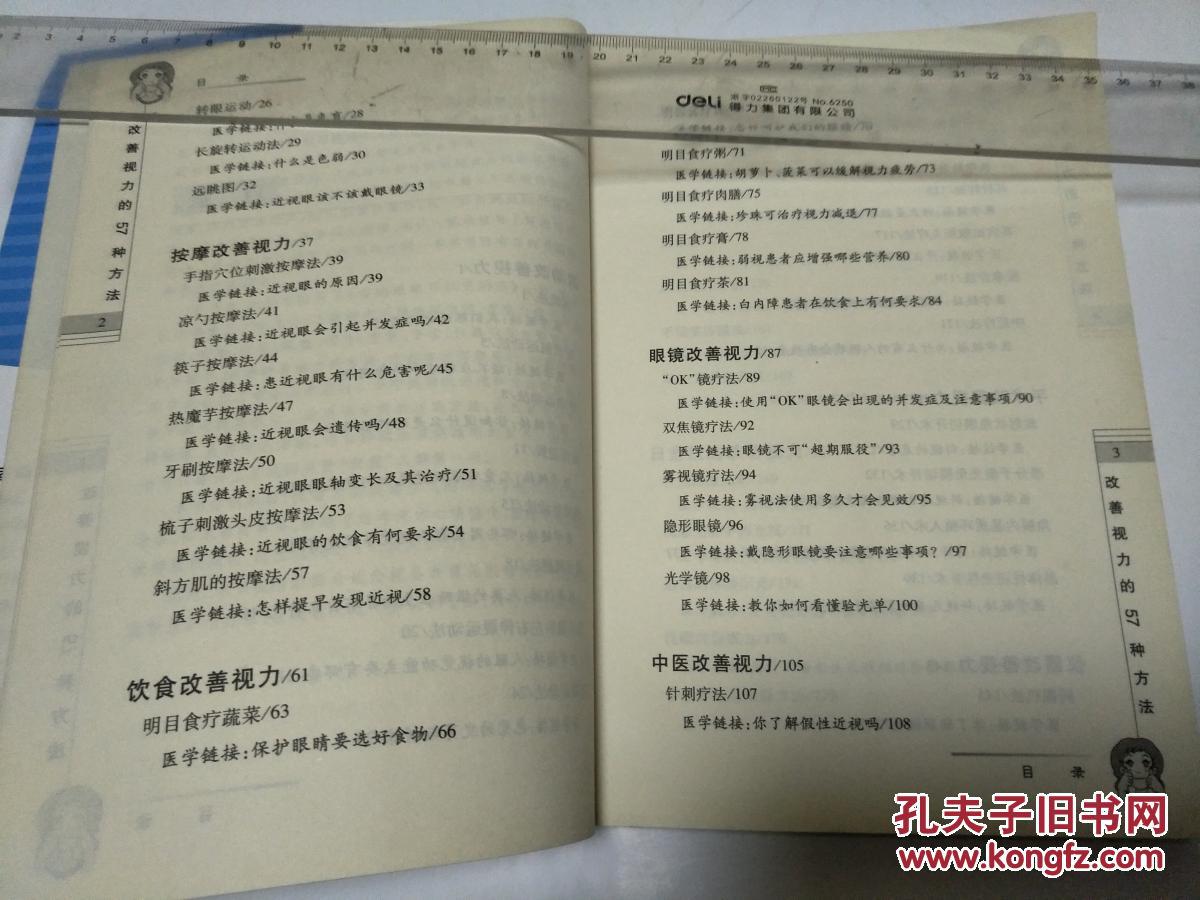 目 录
转眼运动/26
长旋转运动法/29
医学链接：什么是色弱/30
远眺图/32
医学链接：近视眼该不该戴眼镜/33
按摩改善视力/37
手指穴位刺激按摩法/39
医学链接：近视眼的原因/39
凉勺按摩法/41
医学链接：近视眼会引起并发症吗/42
筷子按摩法/44
医学链接：患近视眼有什么危害呢/45
热魔芋按摩法/47
医学链接：近视眼会遗传吗/48
牙刷按摩法/50
医学链接：近视眼眼轴变长及其治疗/51
梳子刺激头皮按摩法/53
医学链接：近视眼的饮食有何要求/54
斜方肌的按摩法/57
医学链接：怎样提早发现近视/58
饮食改善视力/61
明目食疗蔬菜/63
医学链接：保护眼睛要选好食物/66
改善视力的57种方法
2
deli 浙字02260122号 No.6250
得力集团有限公司
明目食疗粥/71
医学链接：胡萝卜、菠菜可以缓解视力疲劳/73
明目食疗肉膳/75
医学链接：珍珠可治疗视力减退/77
明目食疗膏/78
医学链接：弱视患者应增强哪些营养/80
明目食疗茶/81
医学链接：白内障患者在饮食上有何要求/84
眼镜改善视力/87
“OK”镜疗法/89
医学链接：使用“OK”眼镜会出现的并发症及注意事项/90
双焦镜疗法/92
医学链接：眼镜不可“超期服役”/93
雾视镜疗法/94
医学链接：雾视法使用多久才会见效/95
隐形眼镜/96
医学链接：戴隐形眼镜要注意哪些事项？/97
光学镜/98
医学链接：教你如何看懂验光单/100
中医改善视力/105
针刺疗法/107
医学链接：你了解假性近视吗/108
3
改善视力的57种方法
目 录
孔夫子旧书网
www.kongfz.com